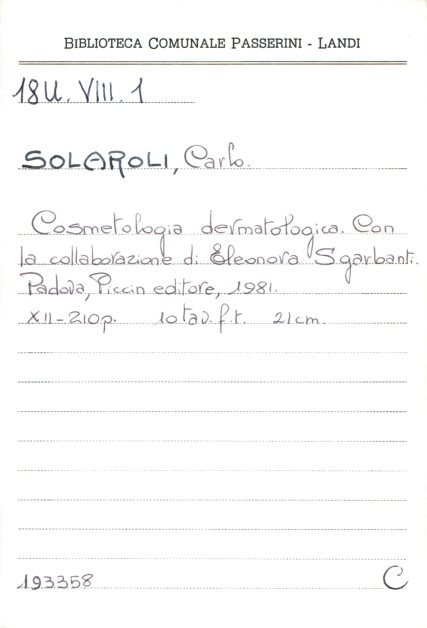 BIBLIOTECA COMUNALE PASSERINI - LANDI
18U. VIII. 1
SOLAROLI, Carlo.
Cosmetologia dermatologica. Con
la collaborazione di Eleonora Sgarbanti.
Padova, Piccin editore, 1981.
XII-210p. 10 tav. f.t. 21cm.
193358 C